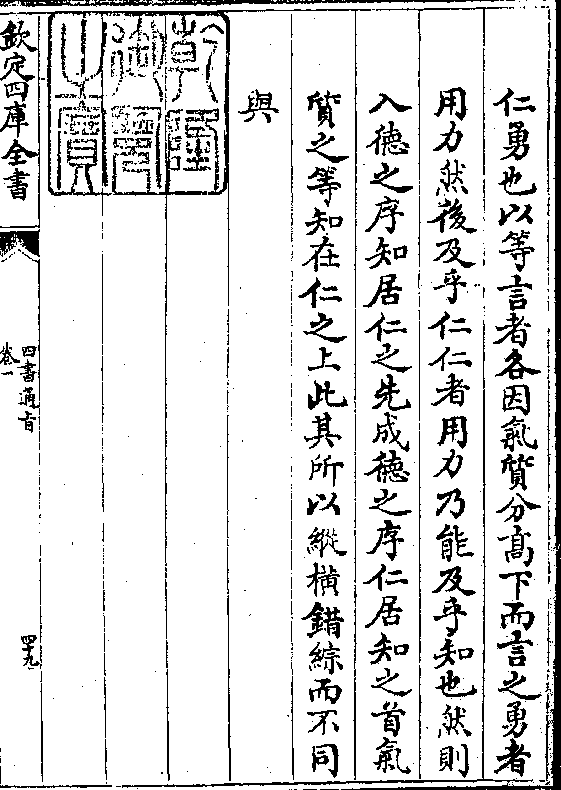 仁勇也以等言者各因氣質分髙下而言之勇者
用力然後及乎仁仁者用力乃能及乎知也然則
入德之序知居仁之先成德之序仁居知之首氣
質之等知在仁之上此其所以縱横錯綜而不同
與
乾隆
御覽
之寳
欽定四庫全書
四書通旨
卷一
四十九